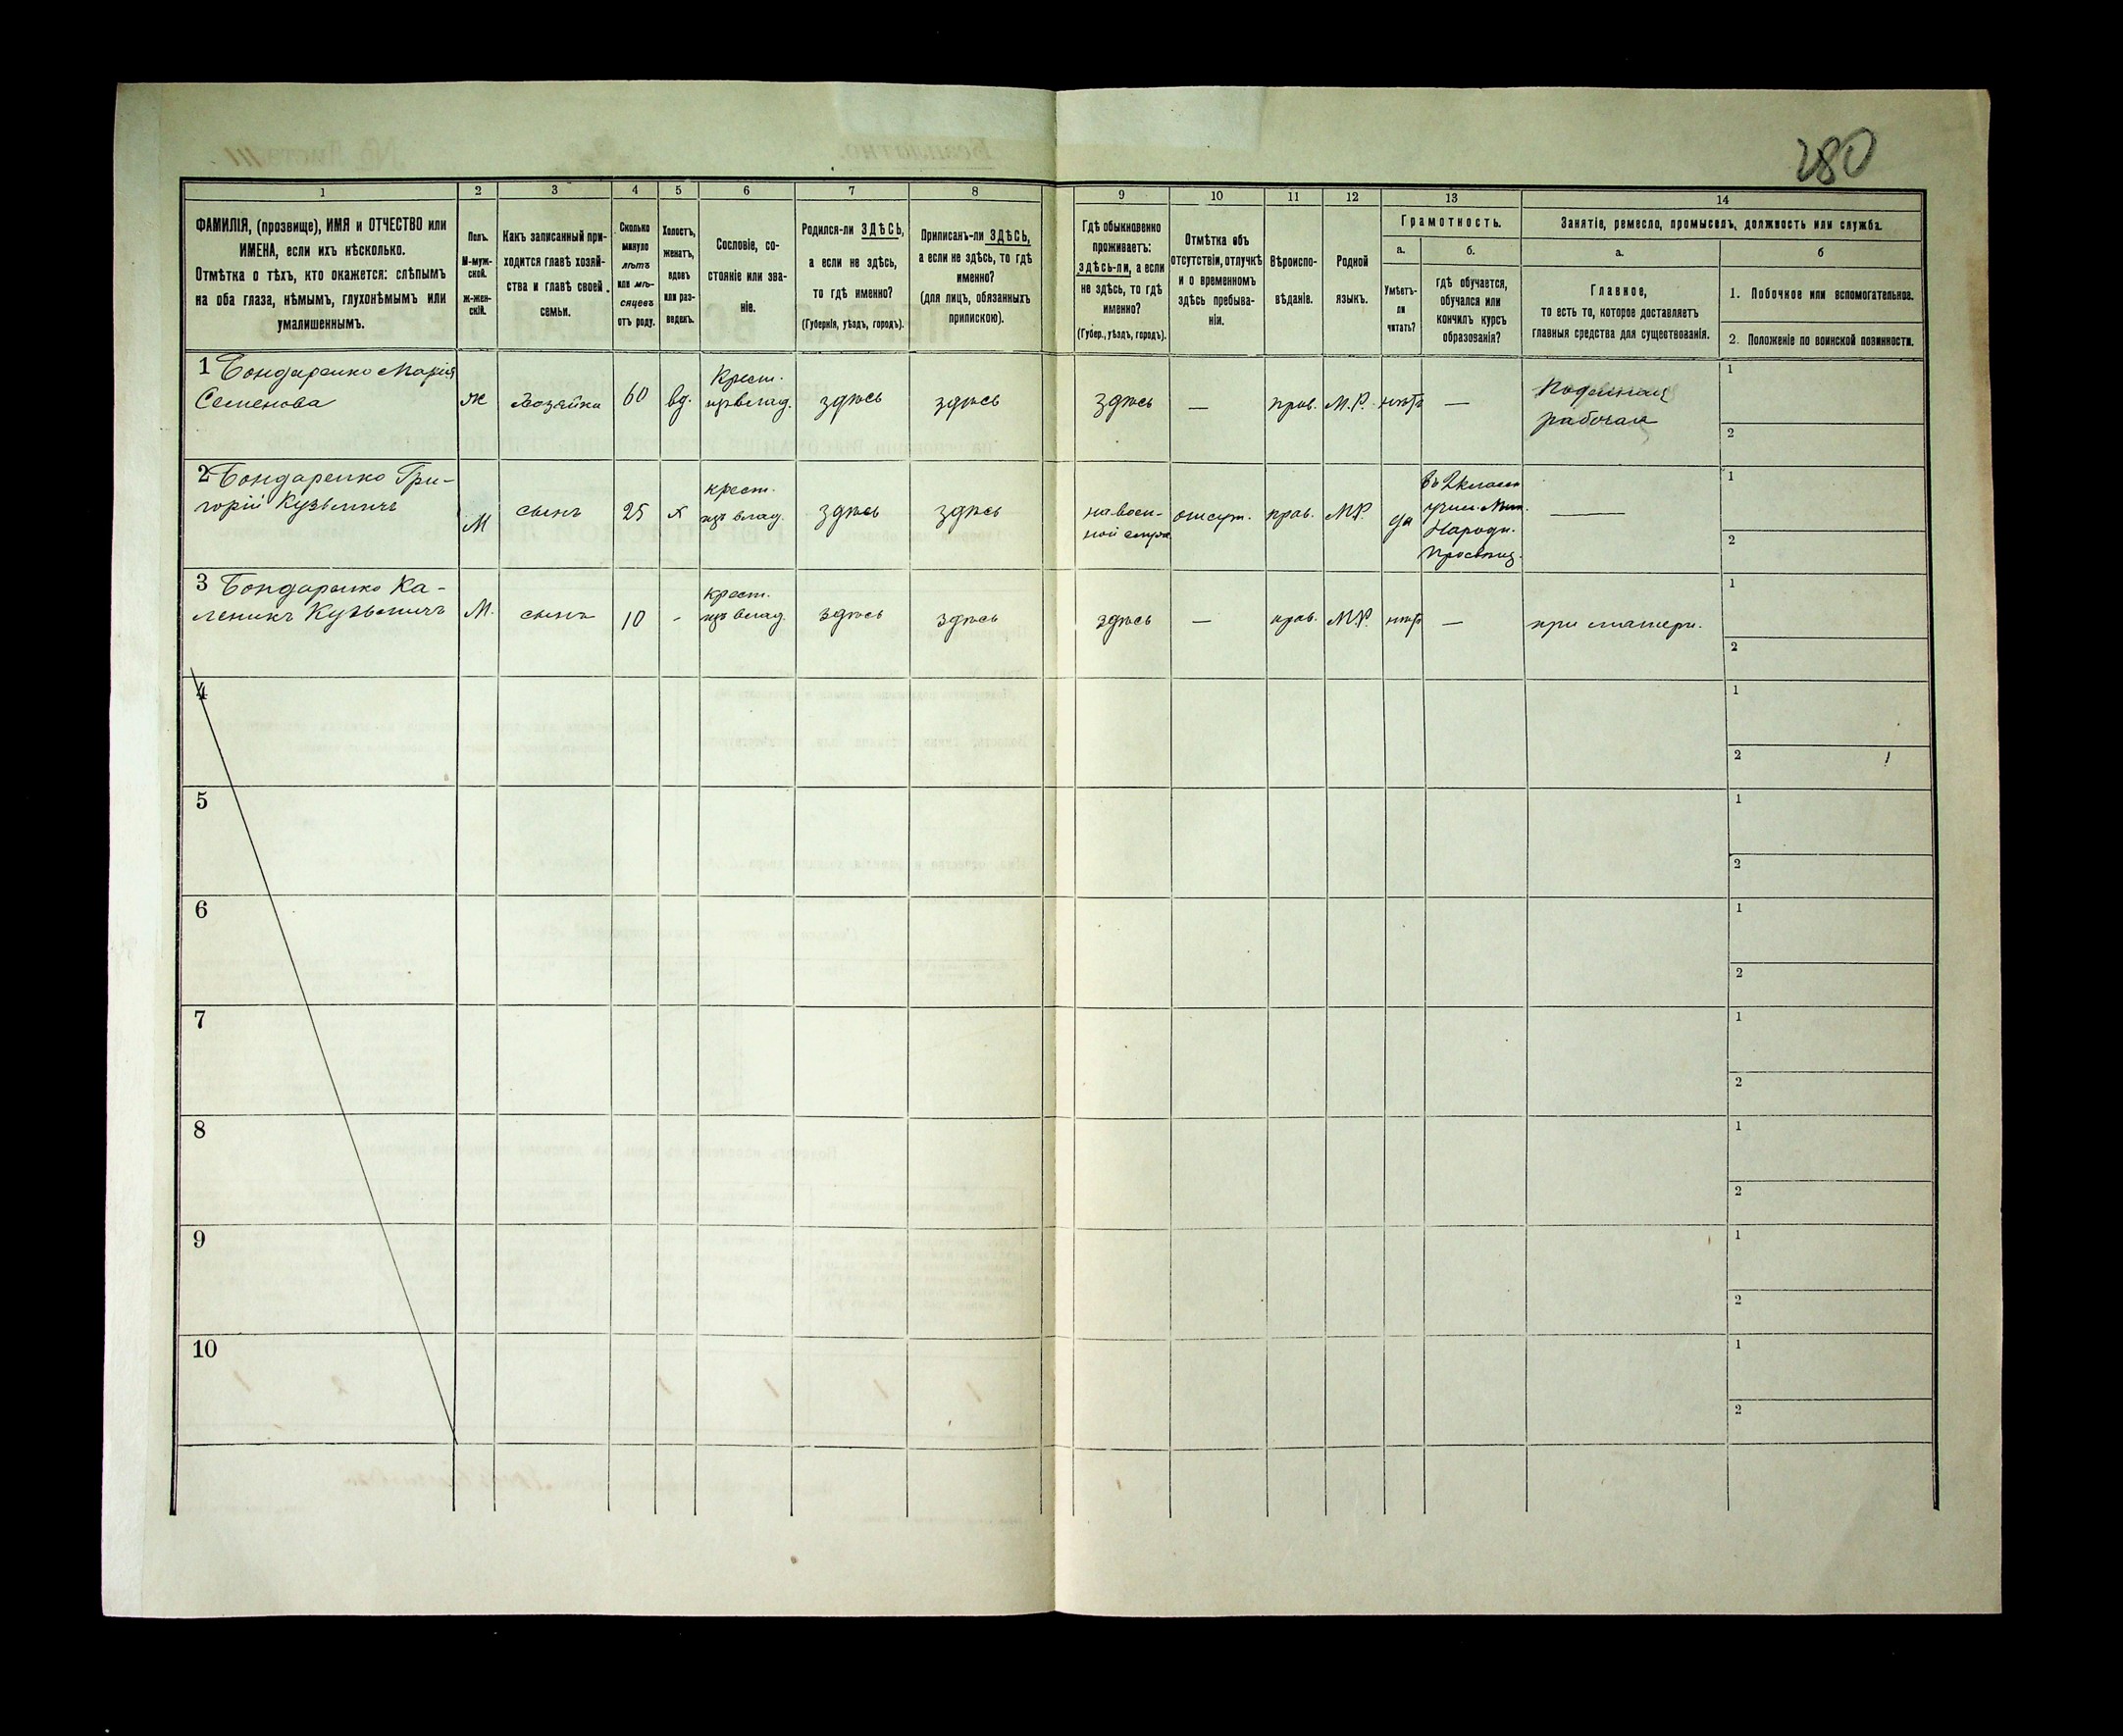 280
1 2 3 4 5 6 7 8 9 10 11 12 13 14
ФАМИЛІЯ, (прозвище), ИМЯ и ОТЧЕСТВО или
ИМЕНА, если ихъ нѣсколько.
Отмѣтка о тѣхъ, кто окажется: слѣпымъ
на оба глаза, нѣмымъ, глухонѣмымъ или
умалишеннымъ.
Полъ.
М-муж-
ской.
ж-жен-
скій.
Какъ записанный при-
ходится главѣ хозяй-
ства и главѣ своей
семьи.
Сколько
минуло
лѣтъ
или мѣ-
сяцевъ
отъ роду.
Холостъ,
женатъ,
вдовъ
или раз-
веденъ.
Сословіе, со-
стояніе или зва-
ніе.
Родился-ли ЗДѢСЬ,
а если не здѣсь,
то гдѣ именно?
(Губернія, уѣздъ, городъ).
Приписанъ-ли ЗДѢСЬ,
а если не здѣсь, то гдѣ
именно?
(для лицъ, обязанныхъ
припискою).
Гдѣ обыкновенно
проживаетъ:
ЗДѢСЬ-ЛИ, а если
не здѣсь, то гдѣ
именно?
(Губер., уѣздъ, городъ).
Отмѣтка объ
отсутствіи, отлучкѣ
и о временномъ
здѣсь пребыва-
ніи.
Вѣроиспо-
вѣданіе.
Родной
языкъ.
Грамотность.
а.
Умѣетъ-
ли
читать?
б.
гдѣ обучается,
обучался или
кончилъ курсъ
образованія?
Занятіе, ремесло, промыселъ, должность или служба.
а.
Главное,
то есть то, которое доставляетъ
главныя средства для существованія.
б
1. Побочное или вспомогательное.
2. Положеніе по воинской повинности.
1 Бондаренко Марія
Семенова
ж
Хозяйка
60
вд.
Крест.
изъ влад.
здѣсь
здѣсь
здѣсь
—
прав.
М.Р.
нѣтъ
—
Поденная
работая
1
2
2 Бондаренко Гри-
горій Кузьмичъ
М
сынъ
25
х
крест.
изъ влад.
здѣсь
здѣсь
на воен-
ной служ.
отсут.
прав.
М.Р.
да
въ 2 класн
учил. Мин.
Народн.
Просвѣщ.
——
1
2
3 Бондаренко Ка-
леникъ Кузьмичъ
М.
сынъ
10
-
крест.
изъ влад.
здѣсь
здѣсь
здѣсь
—
прав.
М.Р.
нѣтъ
—
при матери.
1
2
4
1
2
5
1
2
6
1
2
7
1
2
8
1
2
9
1
2
10
1
2